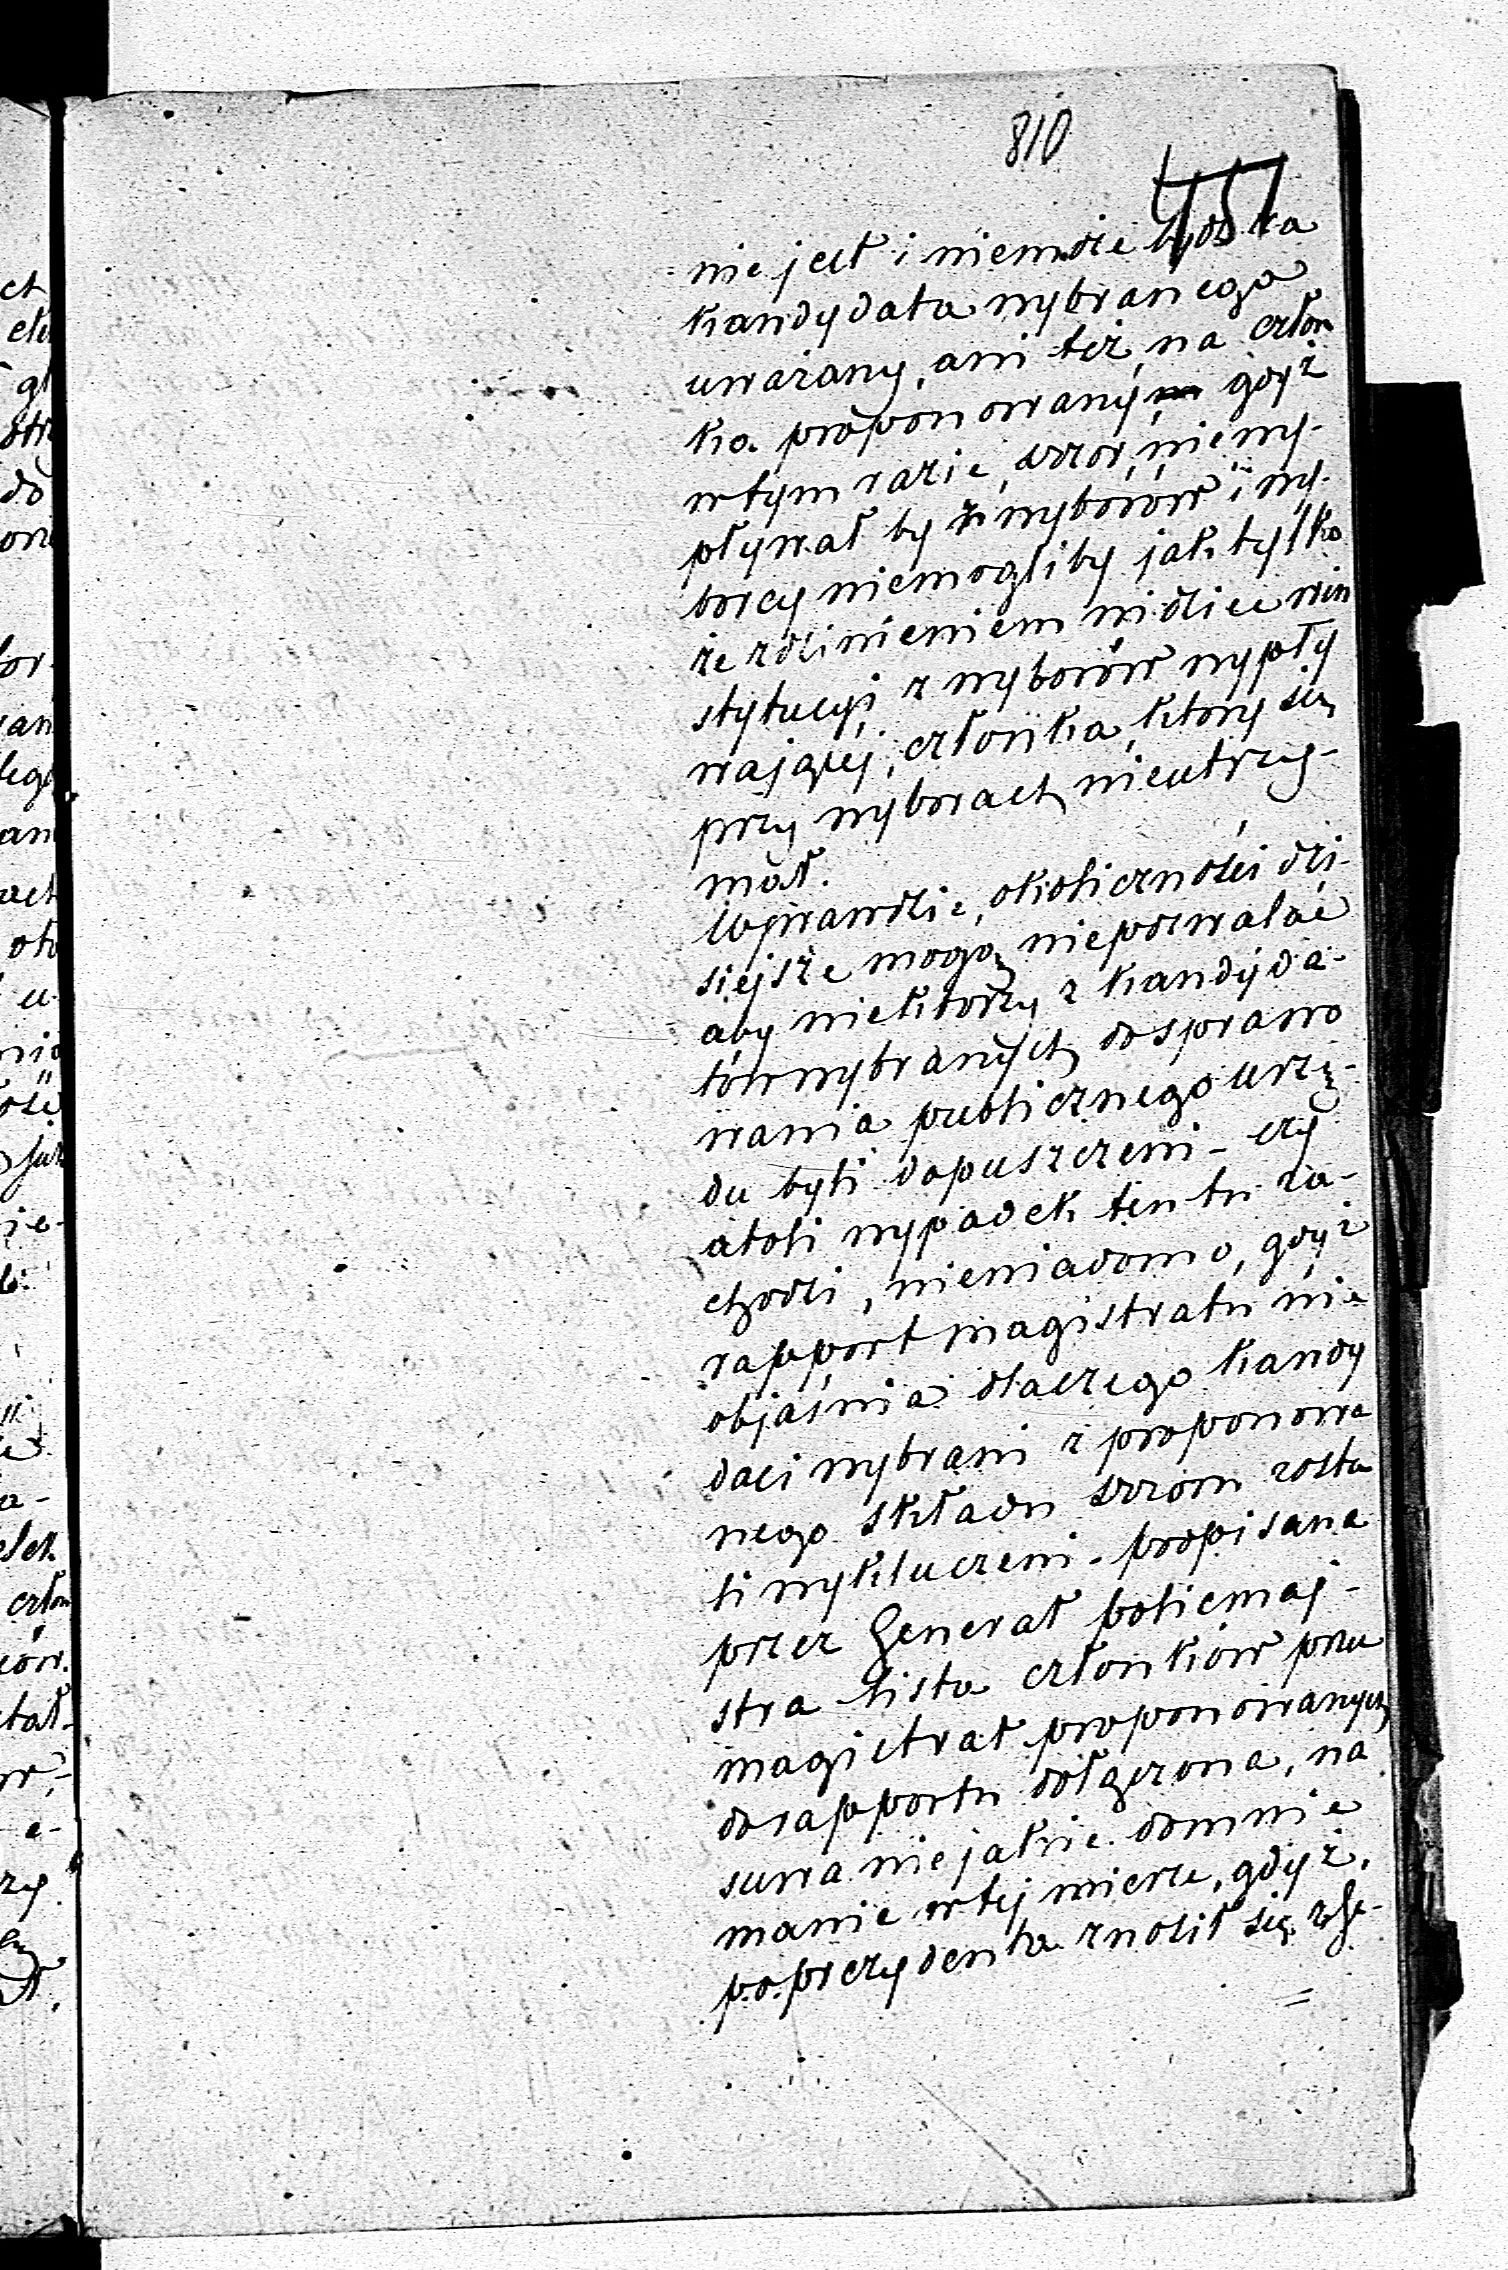 810
451
nie jest i niemoże bydź za
kandydata wybranego
uważany, ani też, na człon
ka proponowanym gdyż
w tym razie, dozór, niewy-
pływał by z wyborów i wy-
borcy niemogliby jak tylko
ze zdziwieniem widzieć w in
stytucyi z wyborów wypły
wającej, członka, który się
przy wyborach nieutrzy-
mał.
Wprawdzie, okoliczności dzi-
siejsze mogą niepozwalać
aby niektórzy z kandyda-
tów wybranych do sprawo
wania publicznego urzę-
du byli dopuszczeni - czy
atoli wypadek ten tu za-
chodzi, niewiadomo, gdyż
rapport magistratu nie
objaśnia dlaczego kandy
daci wybrani z proponowa
nego składu dozoru zosta
li wykluczeni - podpisana
przez Generał policmaj-
stra lista członków przez
magistrat proponowanych
do rapportu dołączona, na
suwa niejakie domnie
manie w tej mierze, gdyż,
p.o. prezydenta znosił się z Ge-